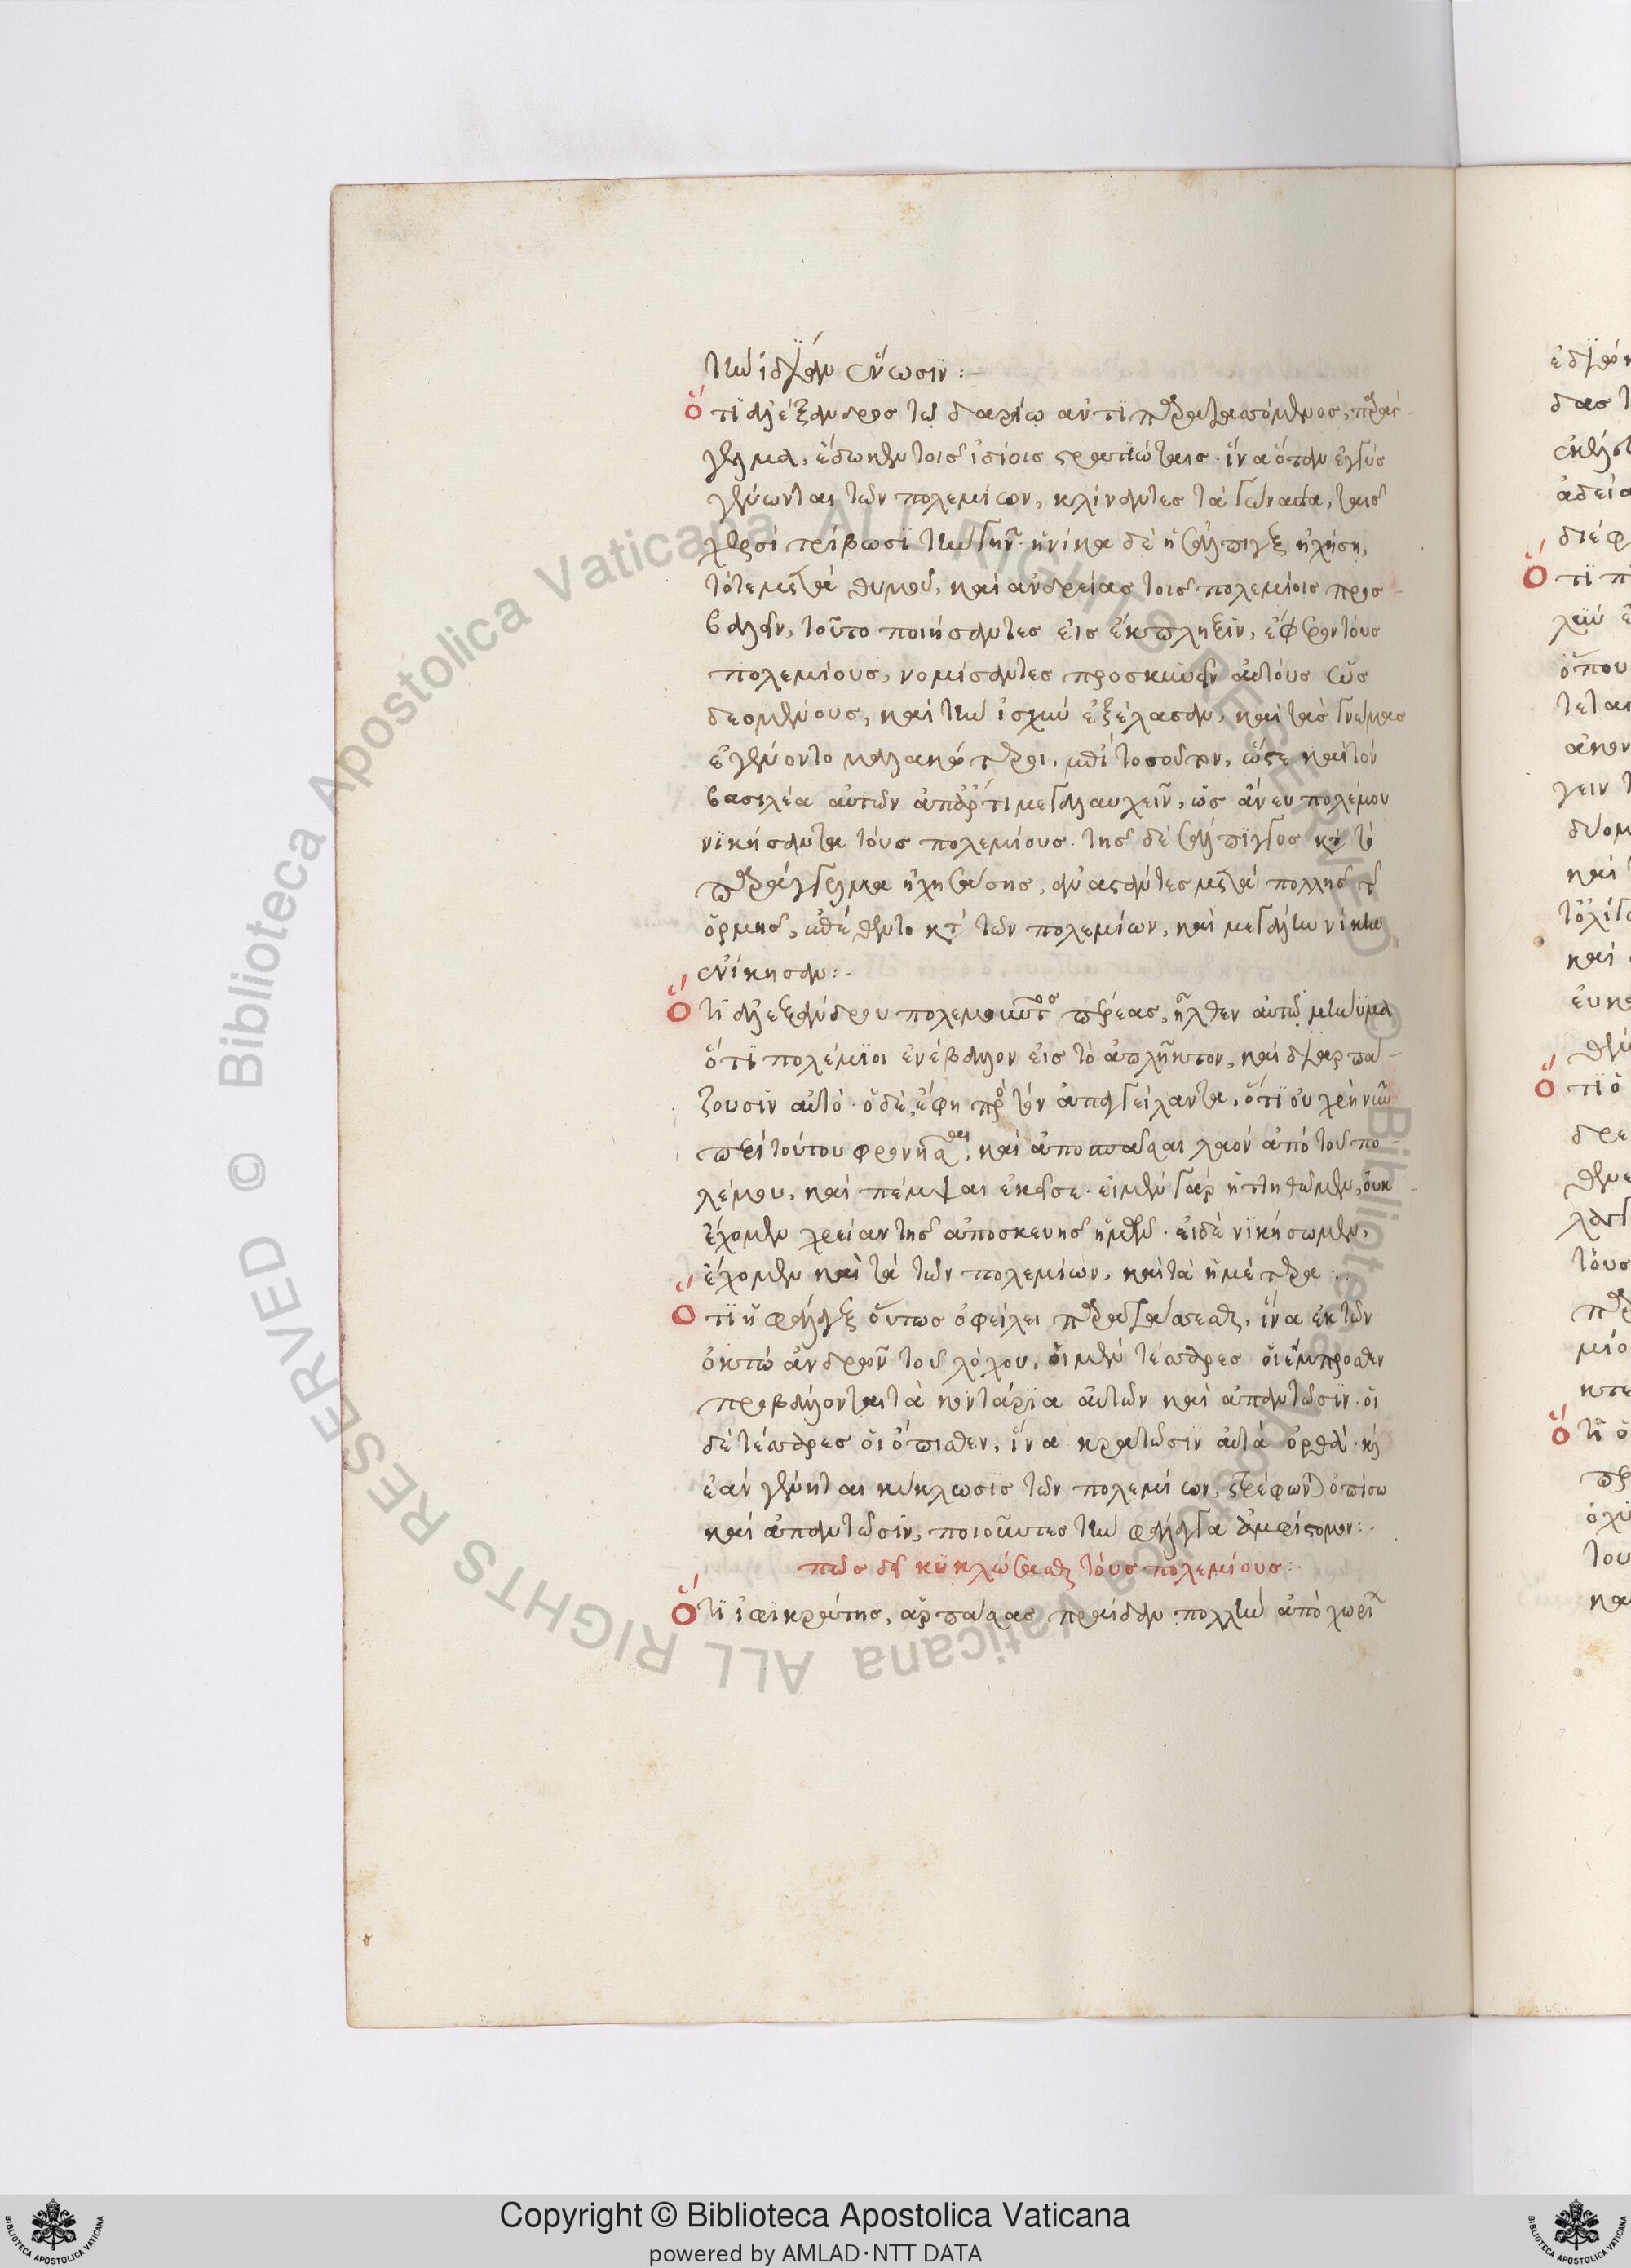 τὴν ἰδίαν ἕνωσιν :-
Ὅτι ἀλέξανδρος τῷ δαρείῳ ἀντιπαραταττόμενος, παράγ-
γελμα ἔδωκεν τοῖς ἰδίοις στρατιώταις. ἵνα ὅταν ἐγγὺς
γένωνται τῶν πολεμίων, κλίναντες τὰ γόνατα, ταῖς
χερσὶ τρίβωσι τὴν γῆν. ἡνίκα δὲ ἡ σάλπιγξ ἠχήση,
τότε μετὰ θυμοῦ, καὶ ἀνδρείας τοῖς πολεμίοις προσ-
βαλεῖν, τοῦτο ποιήσαντες εἰς ἔκπληξιν, ἔφερον τοὺς
πολεμίους, νομίσαντες προσκυνεῖν αὐτοὺς ὡς
δεομένους, καὶ τὴν ἰσχὺν ἐξέλασαν, καὶ τὰς γνώμας
ἐγένοντο μαλακώτεροι, ἐπὶ τοσοῦτον, ὥστε καὶ τὸν
βασιλέα αὐτῶν μεγαλαυχεῖν, ὡς ἄνευ πολέμου
νικήσαντα τοὺς πολεμίους. τῆς δὲ σάλπιγγος κατὰ τὸ
παράγγελμα ἠχησάσης, ἀναστάντες μετὰ πολλῆς τῆς
ὁρμῆς, ἐπέθεντο κατὰ τῶν πολεμίων, καὶ μεγάλην νίκην
ἐνίκησαν :-
Ὅτι ἀλεξάνδρου πολεμοῦντος πέρσας, ἦλθεν αὐτῷ μήνυμα
ὅτι πολέμιοι ἐνέβαλον εἰς τὸ ἄπληκτον, καὶ διαρπά-
ζουσιν αὐτό. ὁ δὲ ἔφη πρὸς τὸν ἀπαγγείλαντα, ὅτι οὐ χρὴ νῦν
περὶ τούτου φροντίσαι, καὶ ἀποσπάσαι λαὸν ἀπὸ τοῦ πο
λέμου, καὶ πέμψαι ἐκεῖσε. εἰ μὲν γὰρ ἡττηθῶμεν, οὐκ
ἔχομεν χρείαν τῆς ἀποσκευῆς ἡμῶν. εἰ δὲ νικήσωμεν,
ἔχομεν καὶ τὰ τῶν πολεμίων, καὶ τὰ ἡμέτερα :.
Ὅτι ἡ φάλαγξ οὕτως ὀφείλει παρατάττεσθαι, ἵνα ἐκ τῶν
ὀκτὼ ἀνδρῶν τοῦ λόχου, οἱ μὲν τέσσαρες οἱ ἔμπροσθεν
προβάλονται τὰ κοντάρια αὐτῶν καὶ ἀπαντῶσιν. οἱ
δὲ τέσσαρες οἱ ὄπισθεν, ἵνα κρατῶσιν αὐτὰ ὀρθά. καὶ
ἐὰν γένηται κύκλωσις τῶν πολεμίων, στρέφωνται ὀπίσω
καὶ ἀπαντῶσιν, ποιοῦντες τὴν φάλαγγα ἀμφίστομον :.
πῶς δεῖ κυκλώσασθαι τοὺς πολεμίους :.
Ὅτι ἰφικράτης, ἁρπάσας πραίδαν πολλὴν ἀπὸ χωρί